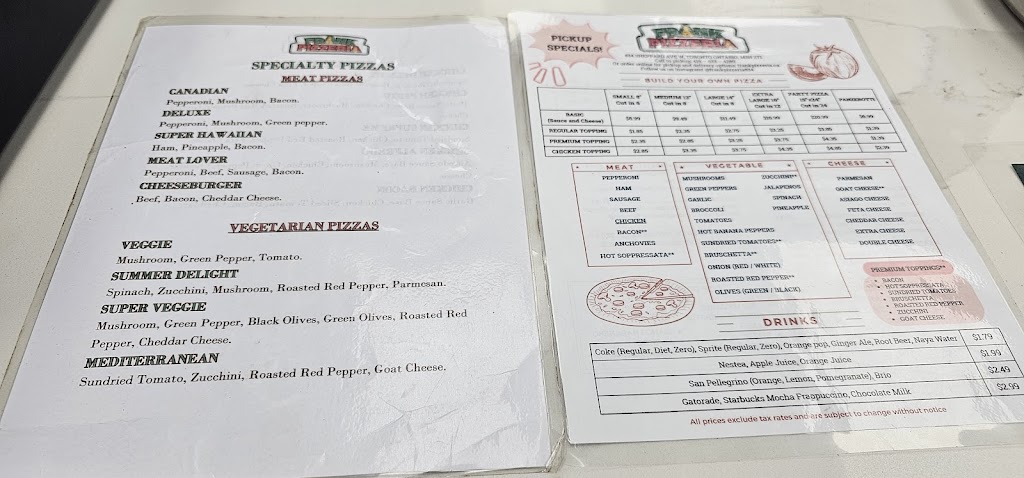 FRANK
PIZZERIA
SPECIALTY PIZZAS
MEAT PIZZAS
CANADIAN
Pepperoni, Mushroom, Bacon.
DELUXE
Pepperoni, Mushroom, Green pepper.
SUPER HAWAIIAN
Ham, Pineapple, Bacon.
MEAT LOVER
Pepperoni, Beef, Sausage, Bacon.
CHEESEBURGER
Beef, Bacon, Cheddar Cheese.
VEGETARIAN PIZZAS
VEGGIE
Mushroom, Green Pepper, Tomato.
SUMMER DELIGHT
Spinach, Zucchini, Mushroom, Roasted Red Pepper, Parmesan.
SUPER VEGGIE
Mushroom, Green Pepper, Black Olives, Green Olives, Roasted Red
Pepper, Cheddar Cheese.
MEDITERRANEAN
Sundried Tomato, Zucchini, Roasted Red Pepper, Goat Cheese.
PICKUP
SPECIALS!
FRANK
PIZZERIA
BUILD YOUR OWN PIZZA
SMALL MEDIUM 12" LARGE 14" EXTRA LARGE PARTY PIZZA PANZEROTTI
BASIC
(Sauce and Cheese)
REGULAR TOPPING
PREMIUM TOPPING
CHICKEN TOPPING
MEAT
PEPPERONI
HAM
SAUSAGE
BEEF
CHICKEN
BACON**
ANCHOVIES
HOT SOPPRESSATA**
VEGETABLE
MUSHROOMS
GREEN PEPPERS
GARLIC
BROCCOLI
TOMATOES
HOT BANANA PEPPERS
SUNDRIED TOMATOES**
BRUSCHETTA**
ONION (RED / WHITE)
ROASTED RED PEPPER**
OLIVES (GREEN / BLACK)
ZUCCHINI**
JALAPENOS
SPINACH
PINEAPPLE
CHEESE
PARMESAN
GOAT CHEESE**
ASIAGO CHEESE
FETA CHEESE
CHEDDAR CHEESE
EXTRA CHEESE
DOUBLE CHEESE
PREMIUM TOPPINGS**
BACON
HOT SOPPRESSATA
SUNDRIED TOMATOES
BRUSCHETTA
ROASTED RED PEPPER
ZUCCHINI
GOAT CHEESE
DRINKS
Coke (Regular, Diet, Zero), Sprite (Regular, Zero), Orange pop, Ginger Ale, Root Beer, Naya Water $1.79
Nestea, Apple Juice, Orange Juice $1.99
San Pellegrino (Orange, Lemon, Pomegranate), Brio $2.49
Gatorade, Starbucks Mocha Frappuccino, Chocolate Milk $2.99
All prices exclude tax rates and are subject to change without notice